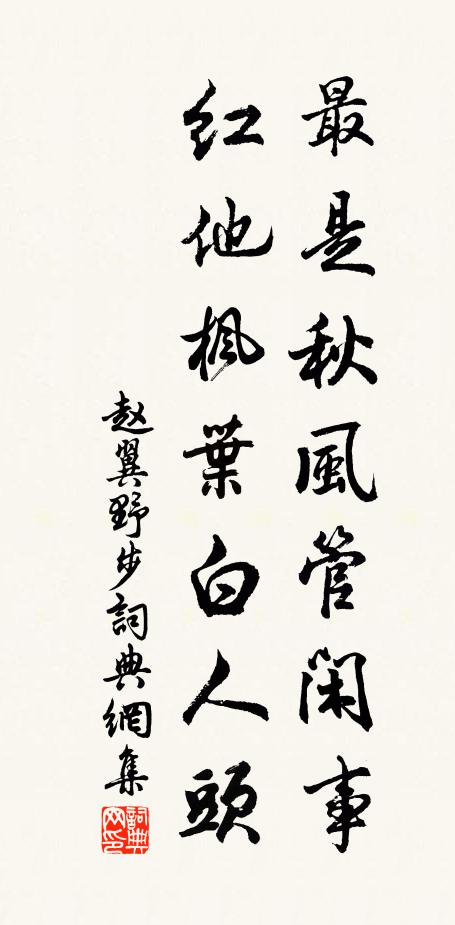 最是秋風管閑事
紅他楓葉白人頭
赵翼野步詞典網集
詞典网印